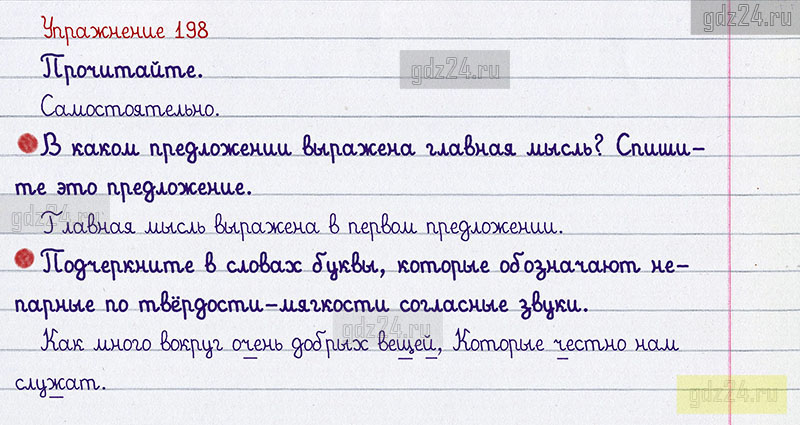 gdz24.ru
Упражнение 198
Прочитайте.
gdz24.ru
Самостоятельно.
В каком предложении выражена главная мысль? Спиши-
те это предложение.
gdz24.ru
Главная мысль выражена в первом предложении.
Подчеркните в словах буквы, которые обозначают не-
парные по твёрдости-мягкости согласные звуки.
gdz24.ru
Как много вокруг очень добрых вещей, Которые честно нам
служат.
gdz24.ru